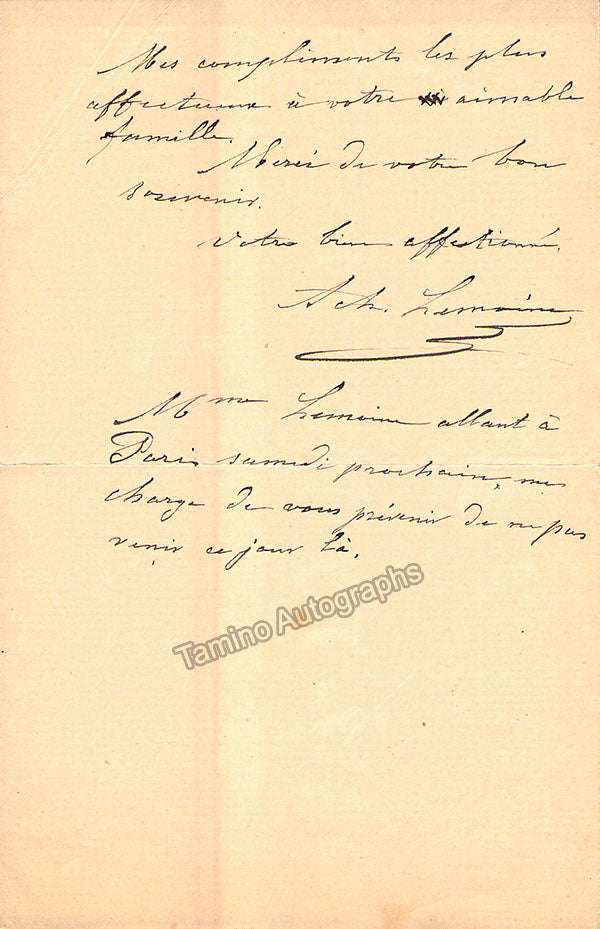 Mes compliments les plus
affectueux à votre aimable
famille.
Merci de votre bon
souvenir.
Votre bien affectionné,
Ach. Lemoine
Mme Lemoine allant à
Paris samedi prochain, me
charge de vous prévenir de ne pas
venir ce jour là.
Tamino Autographs